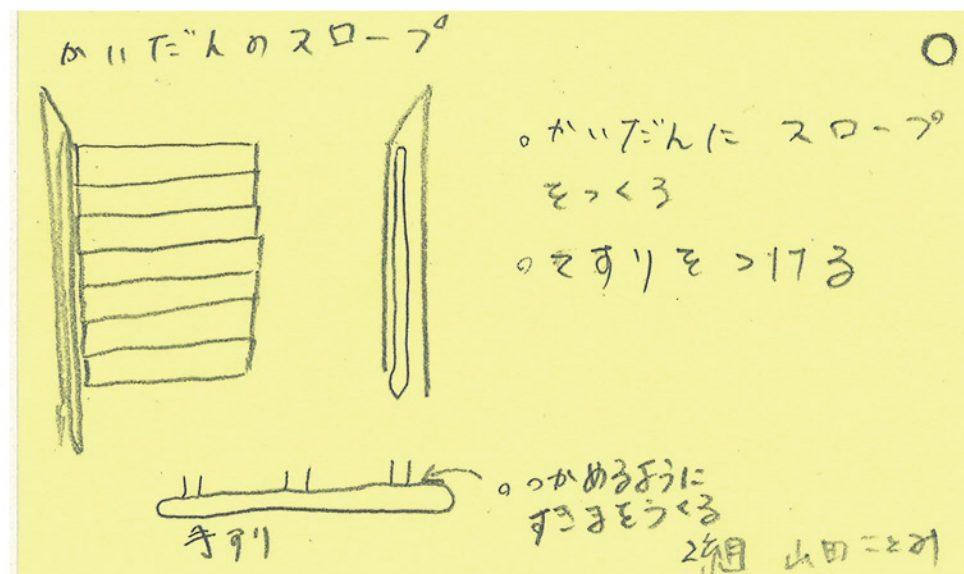 かいだんのスロープ
○
。かいだんに スロープ
をつくる
。てすりをつける
。つかめるように
すきまをつくる
手すり
2組 山田ことみ